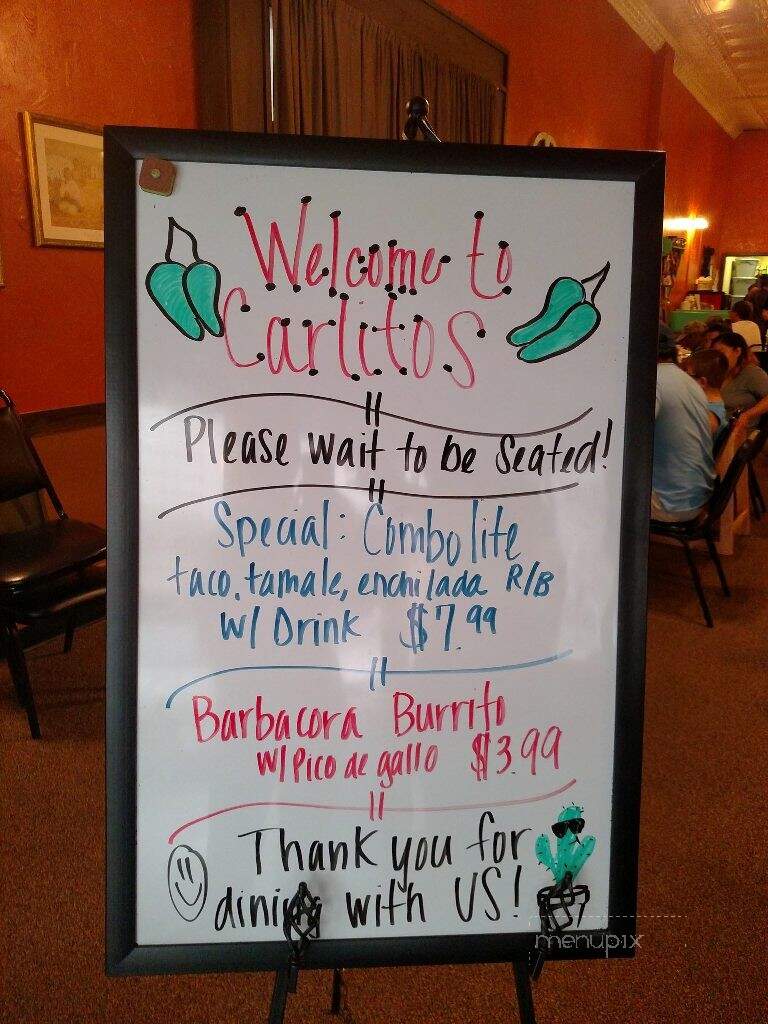 Welcome to
Carlitos
Please wait to be Seated!
Special: Combo lite
taco, tamale, enchilada R/B
w/ Drink $7.99
Barbacora Burrito
w/ Pico de gallo $3.99
Thank you for
dining with US!
menupix